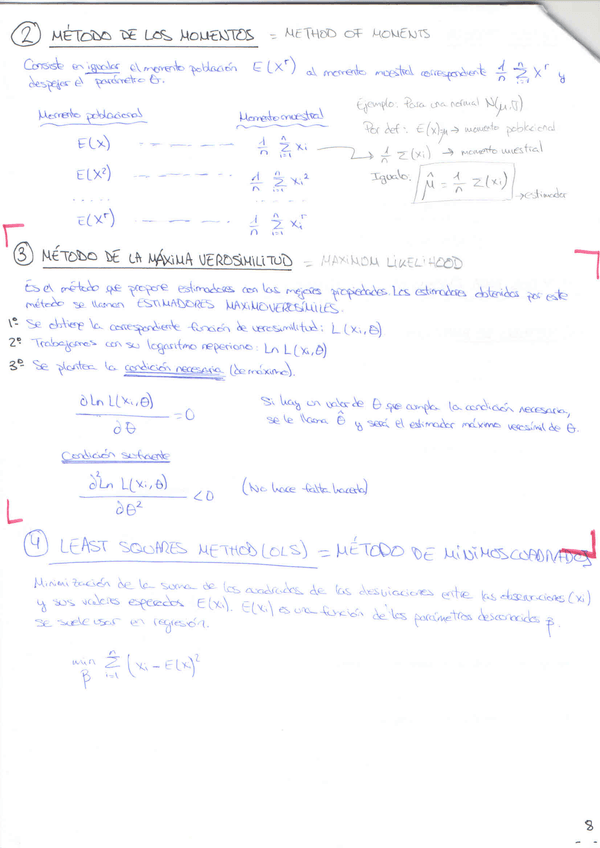 ② MÉTODO DE LOS MOMENTOS = METHOD OF MOMENTS
Consiste en igualar el momento población E(Xʳ) al momento muestral correspondiente 1/n Σⁿᵢ₌₁ Xʳ y
despejar el parámetro θ.
Momento poblacional Momento muestral
E(X) - - - - - 1/n Σⁿᵢ₌₁ xᵢ
E(X²) - - - - - 1/n Σⁿᵢ₌₁ xᵢ²
..... .....
E(Xʳ) - - - - - 1/n Σⁿᵢ₌₁ xᵢʳ
Ejemplo: Para una normal
Por def: → momento poblacional
→ 1/n Σ(xᵢ) → momento muestral
Igualo: μ̂ = 1/n Σ(xᵢ) → estimador
③ MÉTODO DE LA MÁXIMA VEROSIMILITUD = MAXIMUM LIKELIHOOD
Es el método que propone estimadores con las mejores propiedades. Los estimadores obtenidos por este
método se llaman ESTIMADORES MAXIMOVEROSÍMILES.
1º Se obtiene la correspondiente función de verosimilitud: L(xᵢ,θ)
2º Trabajamos con su logaritmo neperiano: Ln L(xᵢ,θ)
3º Se plantea la condición necesaria (de máximo).
∂Ln L(xᵢ,θ)/∂θ = 0
Si hay un valor de θ que cumpla la condición necesaria,
se le llama θ̂ y será el estimador máximo verosímil de θ.
Condición suficiente
∂²Ln L(xᵢ,θ)/∂θ² < 0 (No hace falta hacerla)
④ LEAST SQUARES METHOD (OLS) = MÉTODO DE MÍNIMOS CUADRADOS
Minimización de la suma de los cuadrados de las desviaciones entre las observaciones (xi)
y sus valores esperados E(xi). E(xi) es una función de los parámetros desconocidos β.
Se suele usar en regresión.
min β Σⁿᵢ₌₁ (xi - E(x)²
8